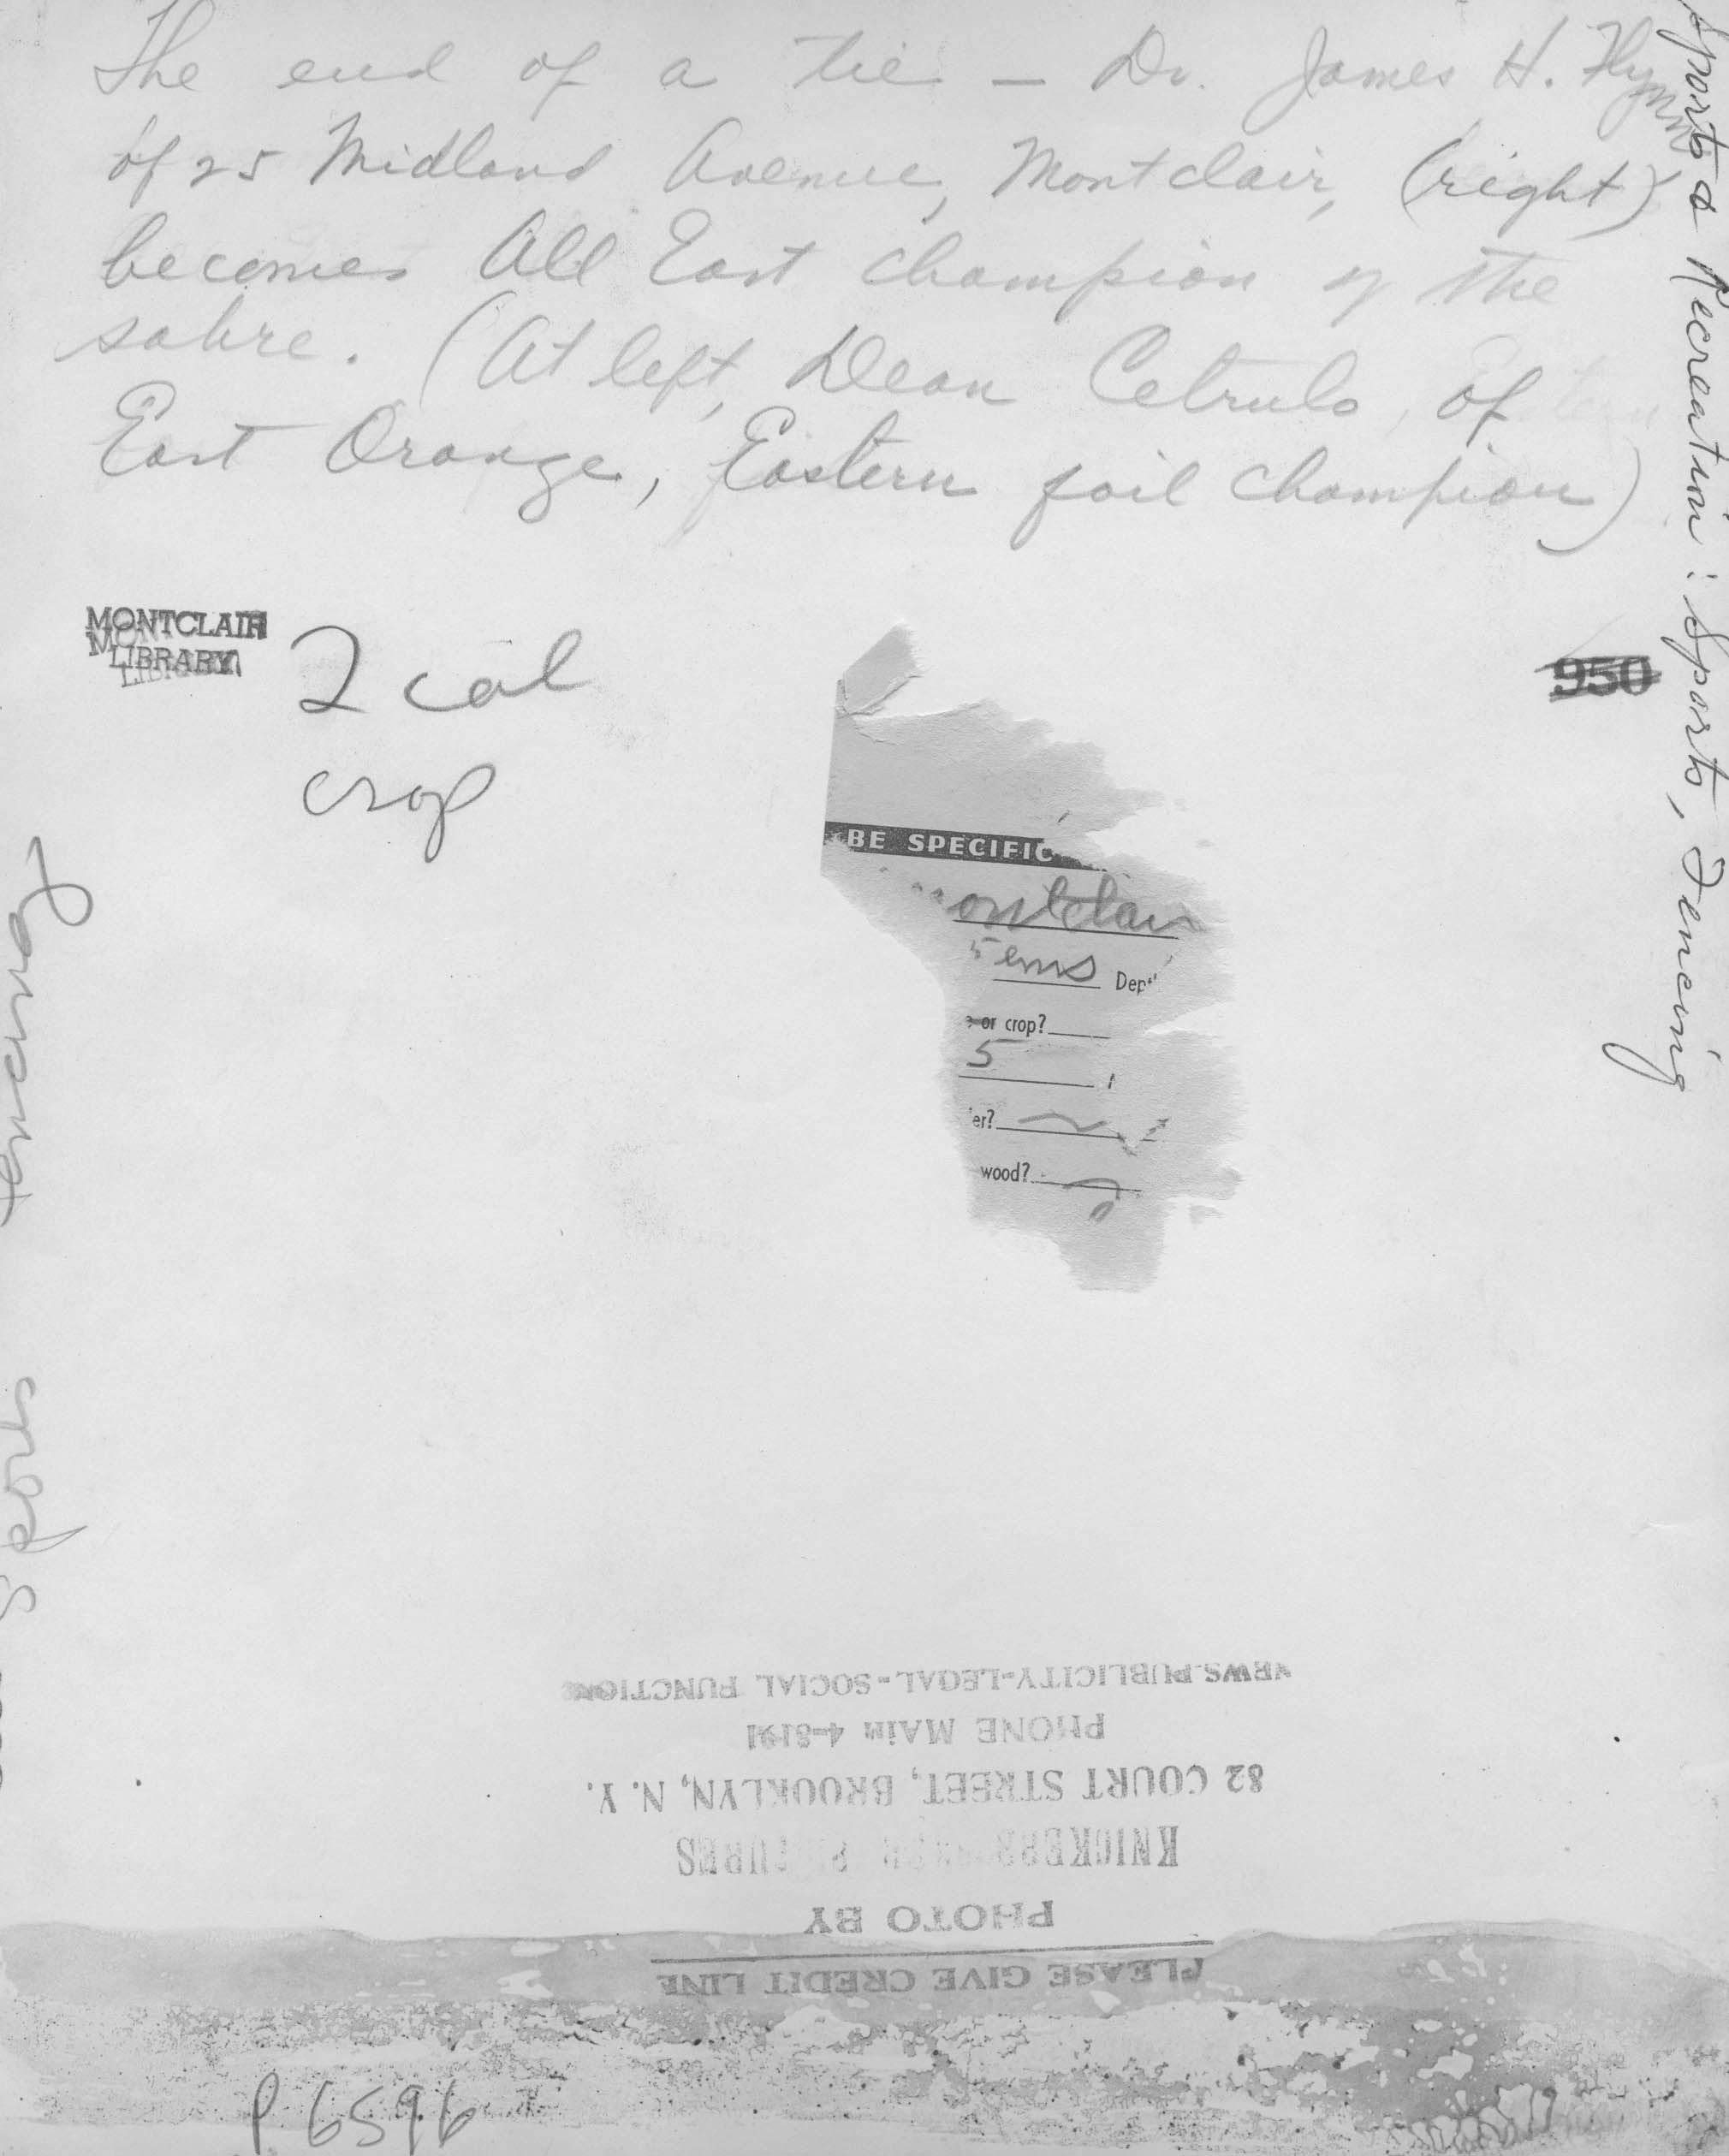 The end of a tie — Dr. James H. Flynn
of 25 Midland Avenue, Montclair, (right)
becomes All East champion of the
sabre. (At left, Dean Cetrulo, of
East Orange, Eastern foil champion)
Sports & Recreation: Sports, Fencing
MONTCLAIR
LIBRARY
2 col
crop
950
BE SPECIFIC
ontclair
ems Dept
or crop?
5
er?
wood?
Fencing
Sports
PLEASE GIVE CREDIT LINE
PHOTO BY
KNICKERB PICTURES
82 COURT STREET, BROOKLYN, N. Y.
PHONE MAin 4-8191
NEWS-PUBLICITY-LEGAL-SOCIAL FUNCTIONS
P6596